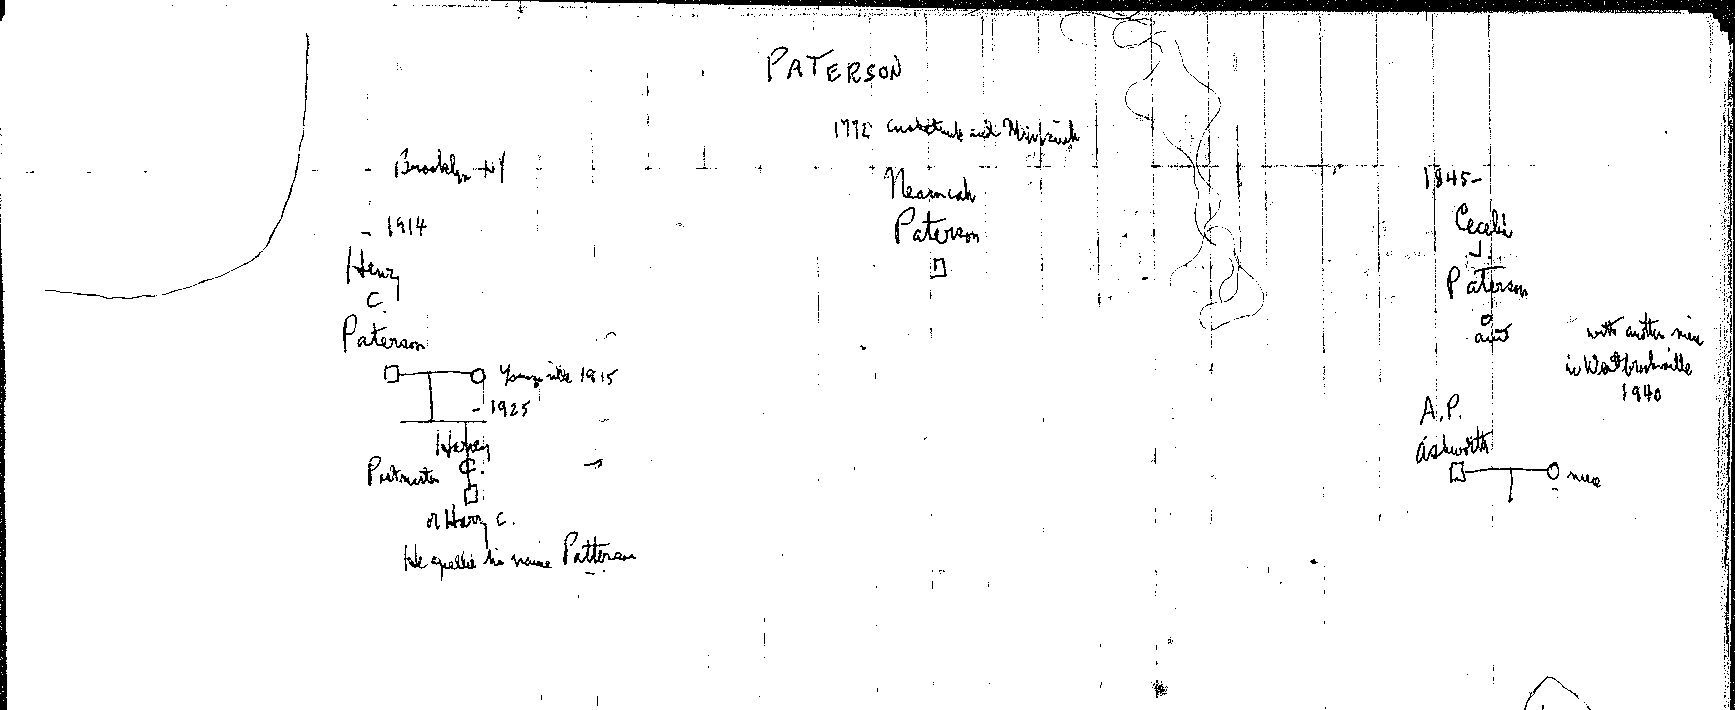 PATERSON
Brooklyn NY
- 1914
Henry
C.
Paterson
Youngsville 1915
- 1925
Harvey
C.
Postmaster
or Harry C.
He spelled his name Patterson
1772 Cushetunk and Minisink
Paterson
1845-
Cecelia
J.
Paterson
aunt
with another niece
in Westbrookville
1940
A.P.
Ashworth
niece